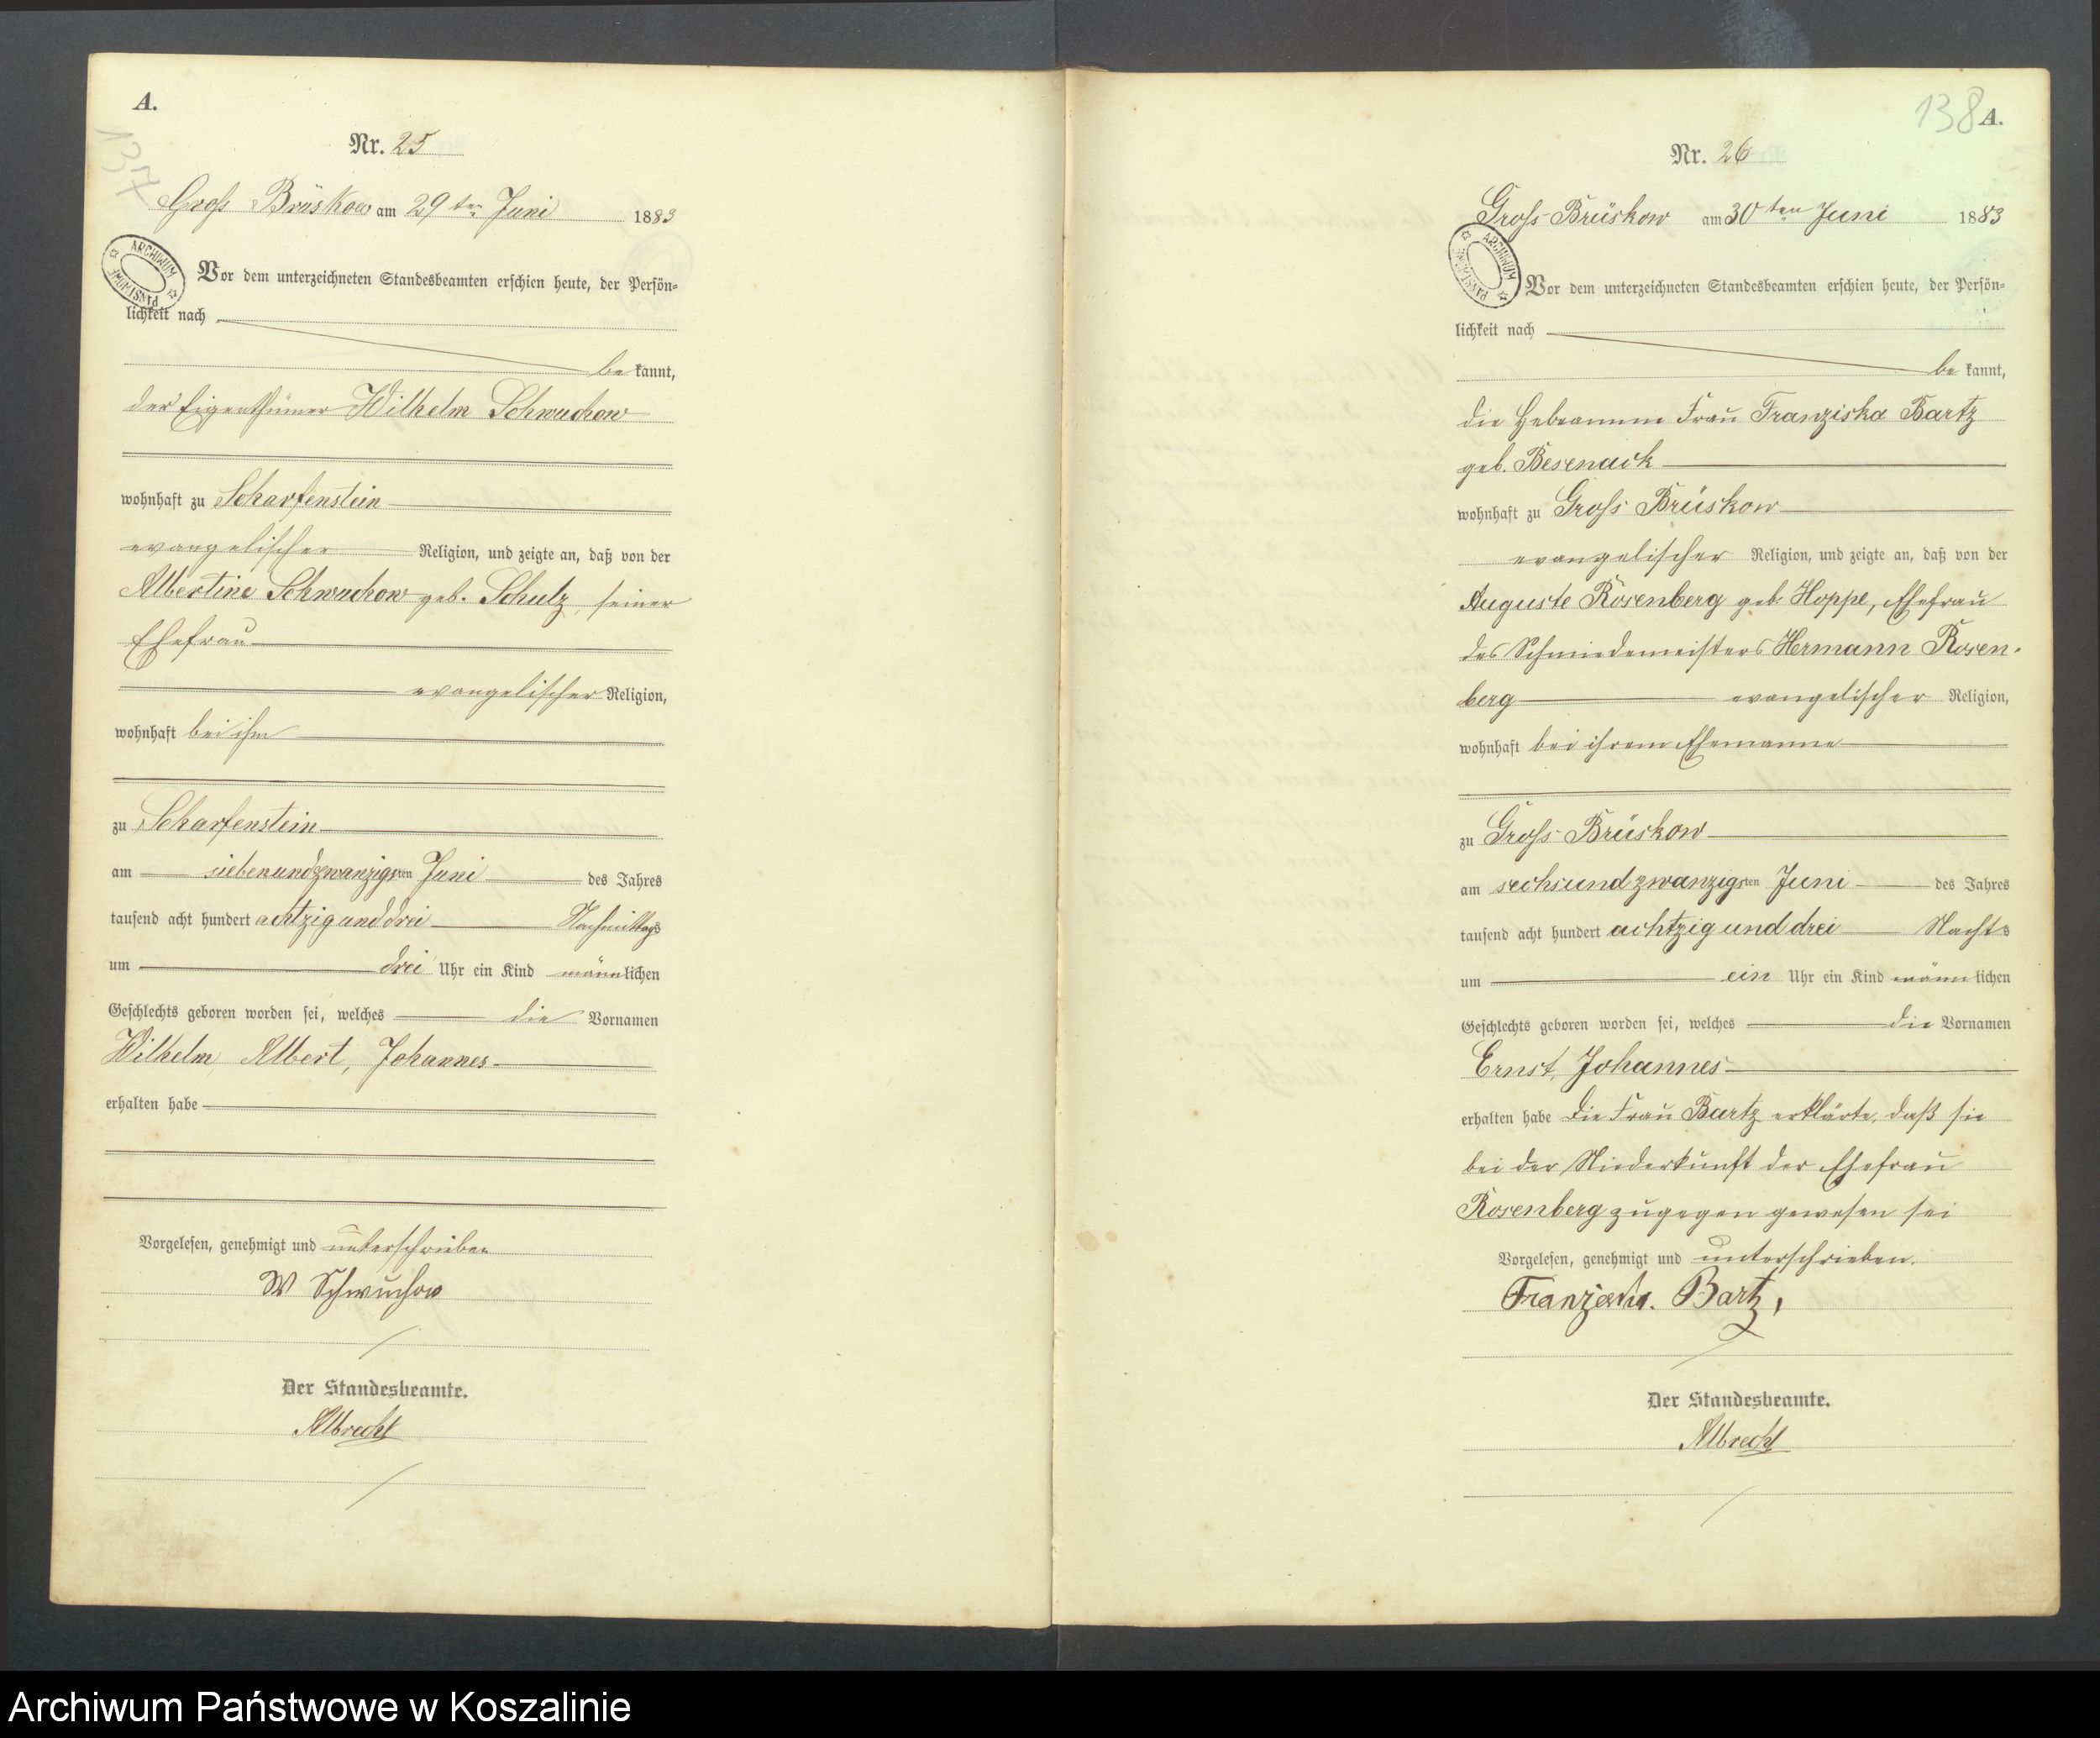 A.
137
Nr. 25
Groß Brüskow am 29ten Juni 1883
ARCHIWUM PAŃSTWOWE
Vor dem unterzeichneten Standesbeamten erschien heute, der Persön-
lichkeit nach
be kannt,
der Eigenthümer Wilhelm Schwuchow
wohnhaft zu Scharfenstein
evangelischer Religion, und zeigte an, daß von der
Albertine Schwuchow geb. Schulz, seiner
Ehefrau
evangelischer Religion,
wohnhaft bei ihm
zu Scharfenstein
am siebenundzwanzigsten Juni des Jahres
tausend acht hundert achtzig und drei Nachmittags
um drei Uhr ein Kind männlichen
Geschlechts geboren worden sei, welches die Vornamen
Wilhelm, Albert, Johannes
erhalten habe
Vorgelesen, genehmigt und unterschrieben
W Schwuchow
Der Standesbeamte.
Albrecht
138 A.
Nr. 26
Groß Brüskow am 30ten Juni 1883
ARCHIWUM PAŃSTWOWE
Vor dem unterzeichneten Standesbeamten erschien heute, der Persön-
lichkeit nach
be kannt,
die Hebeamme Frau Franziska Bartz
geb. Besenack
wohnhaft zu Groß Brüskow
evangelischer Religion, und zeigte an, daß von der
Auguste Rosenberg geb. Hoppe, Ehefrau
des Schmiedemeisters Hermann Rosen-
berg evangelischer Religion,
wohnhaft bei ihrem Ehemanne
zu Groß Brüskow
am sechsundzwanzigsten Juni des Jahres
tausend acht hundert achtzig und drei Nachts
um ein Uhr ein Kind männlichen
Geschlechts geboren worden sei, welches die Vornamen
Ernst, Johannes
erhalten habe Die Frau Bartz erklärte, daß sie
bei der Niederkunft der Ehefrau
Rosenberg zugegen gewesen sei
Vorgelesen, genehmigt und unterschrieben.
Franziska. Bartz,
Der Standesbeamte.
Albrecht
Archiwum Państwowe w Koszalinie